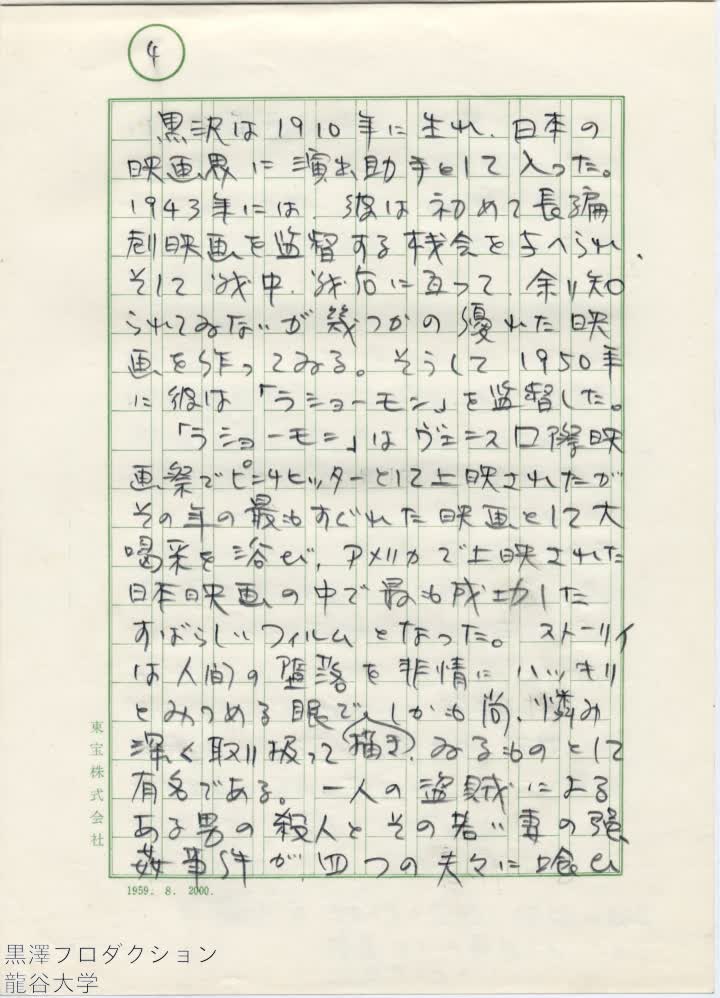 4
黒沢は1910年に生れ、日本の
映画界に演出助手として入った。
1943年には、彼は初めて長編
劇映画を監督する機会を与へられ、
そして戦中、戦后に亙って、余り知
られてゐないが幾つかの優れた映
画を作ってゐる。そうして1950年
に彼は「ラショーモン」を監督した。
「ラショーモン」はヴェニス国際映
画祭でピンチヒッターとして上映されたが
その年の最もすぐれた映画として大
喝采を浴び、アメリカで上映された
日本映画の中で最も成功した
すばらしいフィルムとなった。ストーリイ
は人間の堕落を非情にハッキリ
とみつめる眼で、しかも尚、憐み
深く取り扱って描き、ゐるものとして
有名である。一人の盗賊による
ある男の殺人とその若い妻の強
姦事件が四つの夫々に喰ひ
東宝株式会社
1959. 8. 2000.
黒澤プロダクション
龍谷大学